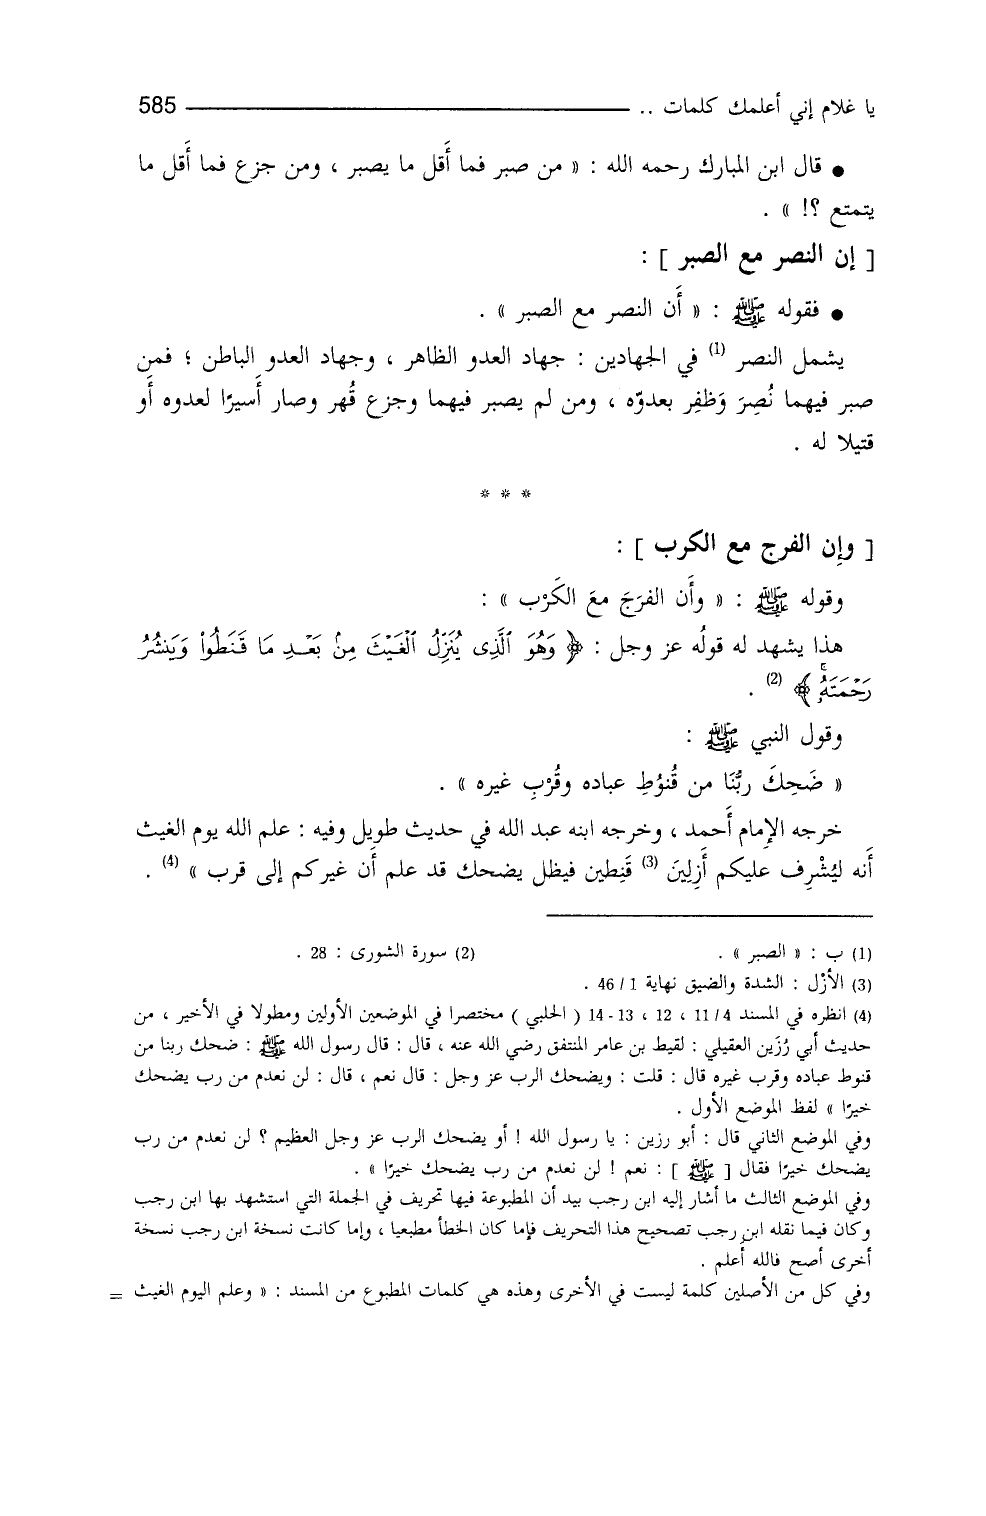 يا غلام إني أعلمك كلمات .. 585
● قال ابن المبارك رحمه الله : « من صبر فما أَقل ما يصبر ، ومن جزع فما أَقل ما
يتمتع ؟! » .
[ إن النصر مع الصبر ] :
● فقوله ﷺ : « أَن النصر مع الصبر » .
يشمل النصر (1) في الجهادين : جهاد العدو الظاهر ، وجهاد العدو الباطن ؛ فمن
صبر فيهما نُصِرَ وَظفِر بعدوّه ، ومن لم يصبر فيهما وجزع قُهر وصار أَسيرًا لعدوه أَو
قتيلا له .
* * *
[ وإن الفرج مع الكرب ] :
وقوله ﷺ : « وأَن الفرَجَ معَ الكَرْب » :
هذا يشهد له قولُه عز وجل : ﴿ وَهُوَ ٱلَّذِى يُنَزِّلُ ٱلْغَيْثَ مِنۢ بَعْدِ مَا قَنَطُوا۟ وَيَنشُرُ
رَحْمَتَهُۥۚ ﴾ (2) .
وقول النبي ﷺ :
« ضَحِكَ ربُّنَا من قُنوُطِ عباده وقُرْبِ غيره » .
خرجه الإِمام أَحمد ، وخرجه ابنه عبد الله في حديث طويل وفيه : علم الله يوم الغيث
أَنه ليُشْرِف عليكم أَزِلِينَ (3) قَنِطين فيظل يضحك قد علم أَن غيركم إلى قرب » (4) .
(1) ب : « الصبر » . (2) سورة الشورى : 28 .
(3) الأزْل : الشدة والضيق نهاية 1 / 46 .
(4) انظره في المسند 4 / 11 ، 12 ، 13 - 14 ( الحلبي ) مختصرا في الموضعين الأولين ومطولا في الأخير ، من
حديث أبي رُزَين العقيلي : لقيط بن عامر المنتفق رضي الله عنه ، قال : قال رسول الله ﷺ : ضحك ربنا من
قنوط عباده وقرب غيره قال : قلت : ويضحك الرب عز وجل : قال نعم ، قال : لن نعدم من رب يضحك
خيرًا » لفظ الموضع الأول .
وفي الموضع الثاني قال : أبو رزين : يا رسول الله ! أو يضحك الرب عز وجل العظيم ؟ لن نعدم من رب
يضحك خيرًا فقال [ ﷺ ] : نعم ! لن نعدم من رب يضحك خيرًا » .
وفي الموضع الثالث ما أشار إليه ابن رجب بيد أن المطبوعة فيها تحريف في الجملة التي استشهد بها ابن رجب
وكان فيما نقله ابن رجب تصحيح هذا التحريف فإما كان الخطأ مطبعيا ، وإما كانت نسخة ابن رجب نسخة
أخرى أصح فالله أعلم .
وفي كل من الأصلين كلمة ليست في الأخرى وهذه هي كلمات المطبوع من المسند : « وعلم اليوم الغيث =